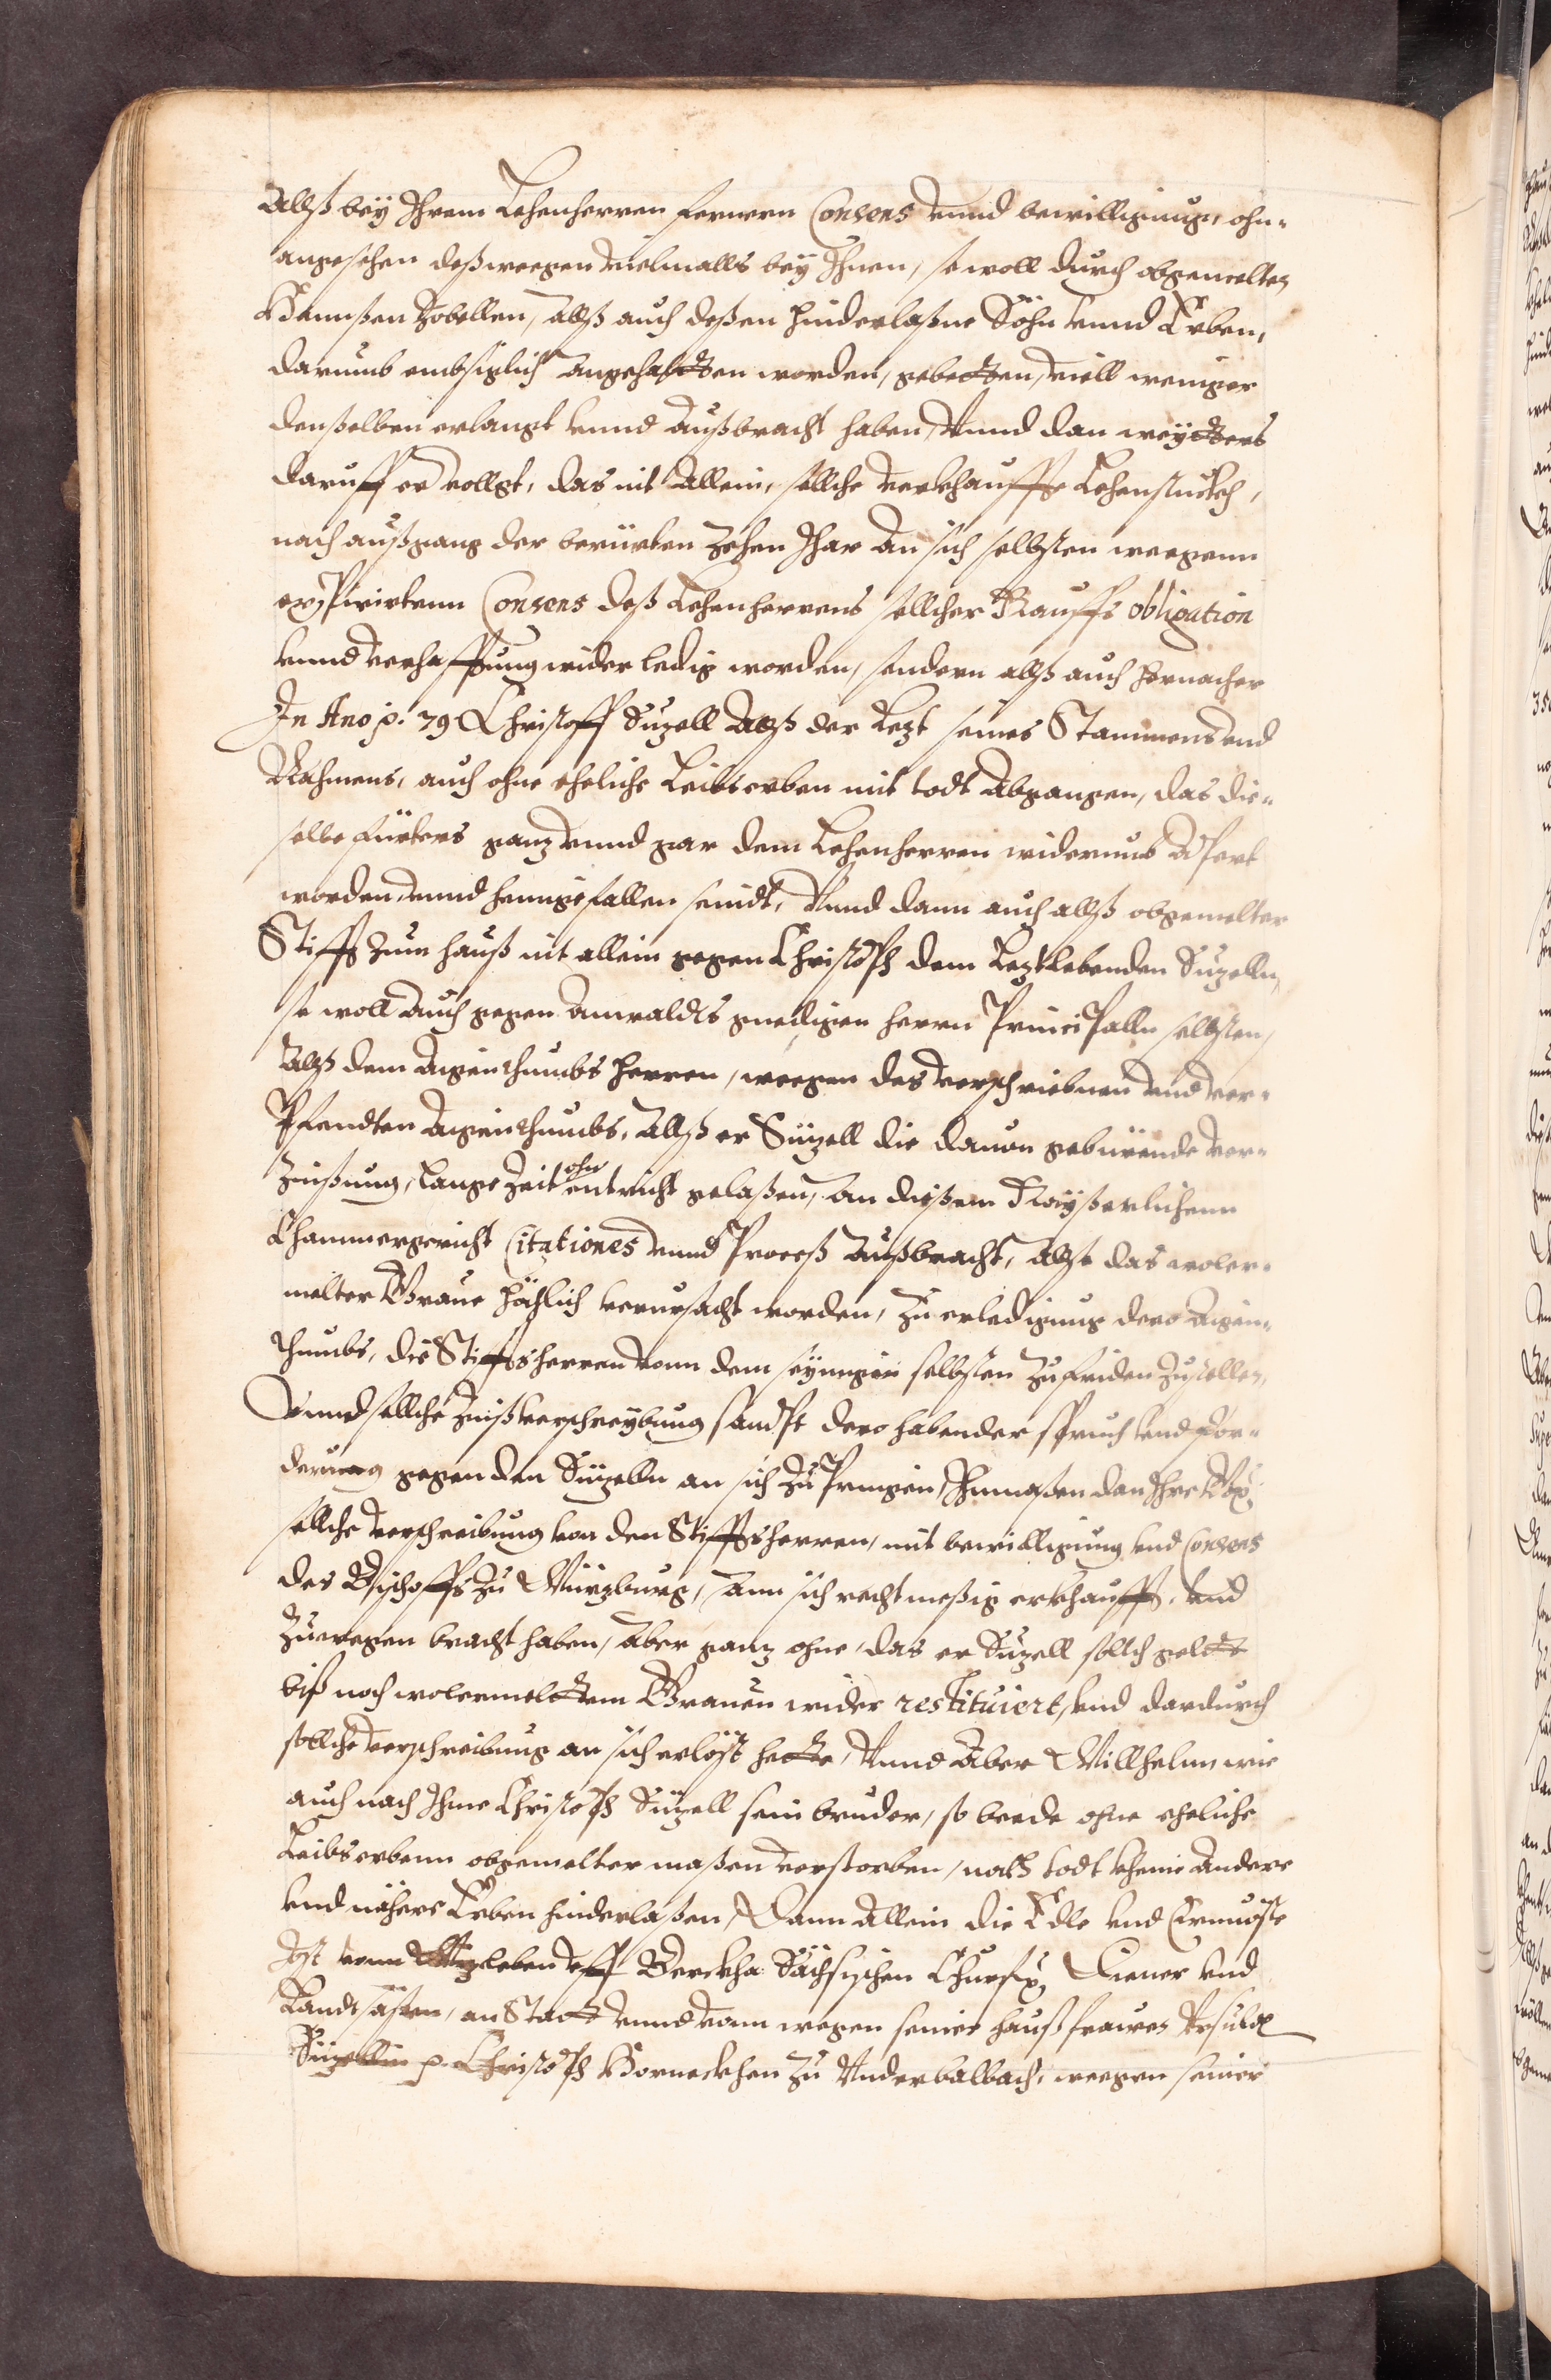 Allß bey Ihrem Lehenherren fernern Consens vnnd bewilligung, ohn-
angesehen deßwegen vielmalls bey Ihnen, so woll durch obgemelten
Hannßen Zobellen, allß auch deßen hinderlaßne Söhn vnnd Erben,
darumb embsiglich angehaltten worden, gebetten, viell weniger
denselben erlangt vnnd außbracht haben, Vnnd dan weytters
daruff ervollgt, das nit allein, sollche verkhauffte Lehenstückh,
nach außgang der berürten zehen Jhar an sich selbsten weegenn
expirirtenn Consens deß Lehenherrens sollcher Kauffs obligation
vnnd verhafftung wider ledig worden, sondern allß auch hernacher
In Ano p. 79 Christoff Süzell allß der Lezt seines Stammens vnd
Nahmens, auch ohne eheliche Leibserben mit todt abgangen, das die-
selbe fürters ganz vnnd gar dem Lehenherren widerumb apert
worden vnnd heimgefallen seindt, Vnnd dann auch allß obgemelter
Stifft zum hauß nit allein gegen Christoph dem Leztlebenden Süzelln,
so woll auch gegen anwaldts gnedigen herrn Principalln selbsten,
Allß dem aigenthumbs herren, weegen des verschriebnen vnd ver-
Pfendten aigenthumbs, allß er Süzell die dauon gebürende ver-
zinßung, lange zeit ohn entricht gelaßen, an dißem Kayßerlichenn
Chammergericht Citationes vnnd Proceß außbracht, allso das woler-
melter Graue höchlich verursacht worden, zu erledigung dero aigen-
thumbs, die Stifftsherren vonn dem seynigen selbsten zufriden zustellen,
Vnnd sollche Zinßverschreybung sambt dero habender spruch vnd for-
derung gegen den Süzelln an sich zu Pringen, Inmaßen dan Ihre Gn:
sollche verschreibung von den Stifftsherren, mit bewilligung vnd Consens
des Bischoffs zu Würzburg, ann sich rechtmeßig erkhaufft, vnd
zuwegen bracht haben, aber ganz ohne, das er Süzell sollch geldt
biß noch wolermeltem Grauen wider restituiert, vnd dardurch
sollche verschreibung an sich erlöst hette, Vnnd aber Willhelm wie
auch nach Ihme Christoph Süzell sein bruder, so beede ohne eheliche
Leibserbenn obgemelter maßen verstorben, nach todt kheine andere
vnd nähere Erben hinderlaßen, Dann allein die Edle vnd Ernueste
Jost vonn Wizleben vff Berckha Sächsischen Churf: Diener vnd
Landtsäßen, an Statt vnnd vonn wegen seiner haußfrawen Vrsula
Süzellin p. Christoph Horneckhen zu Vnderbalbach, weegen seiner